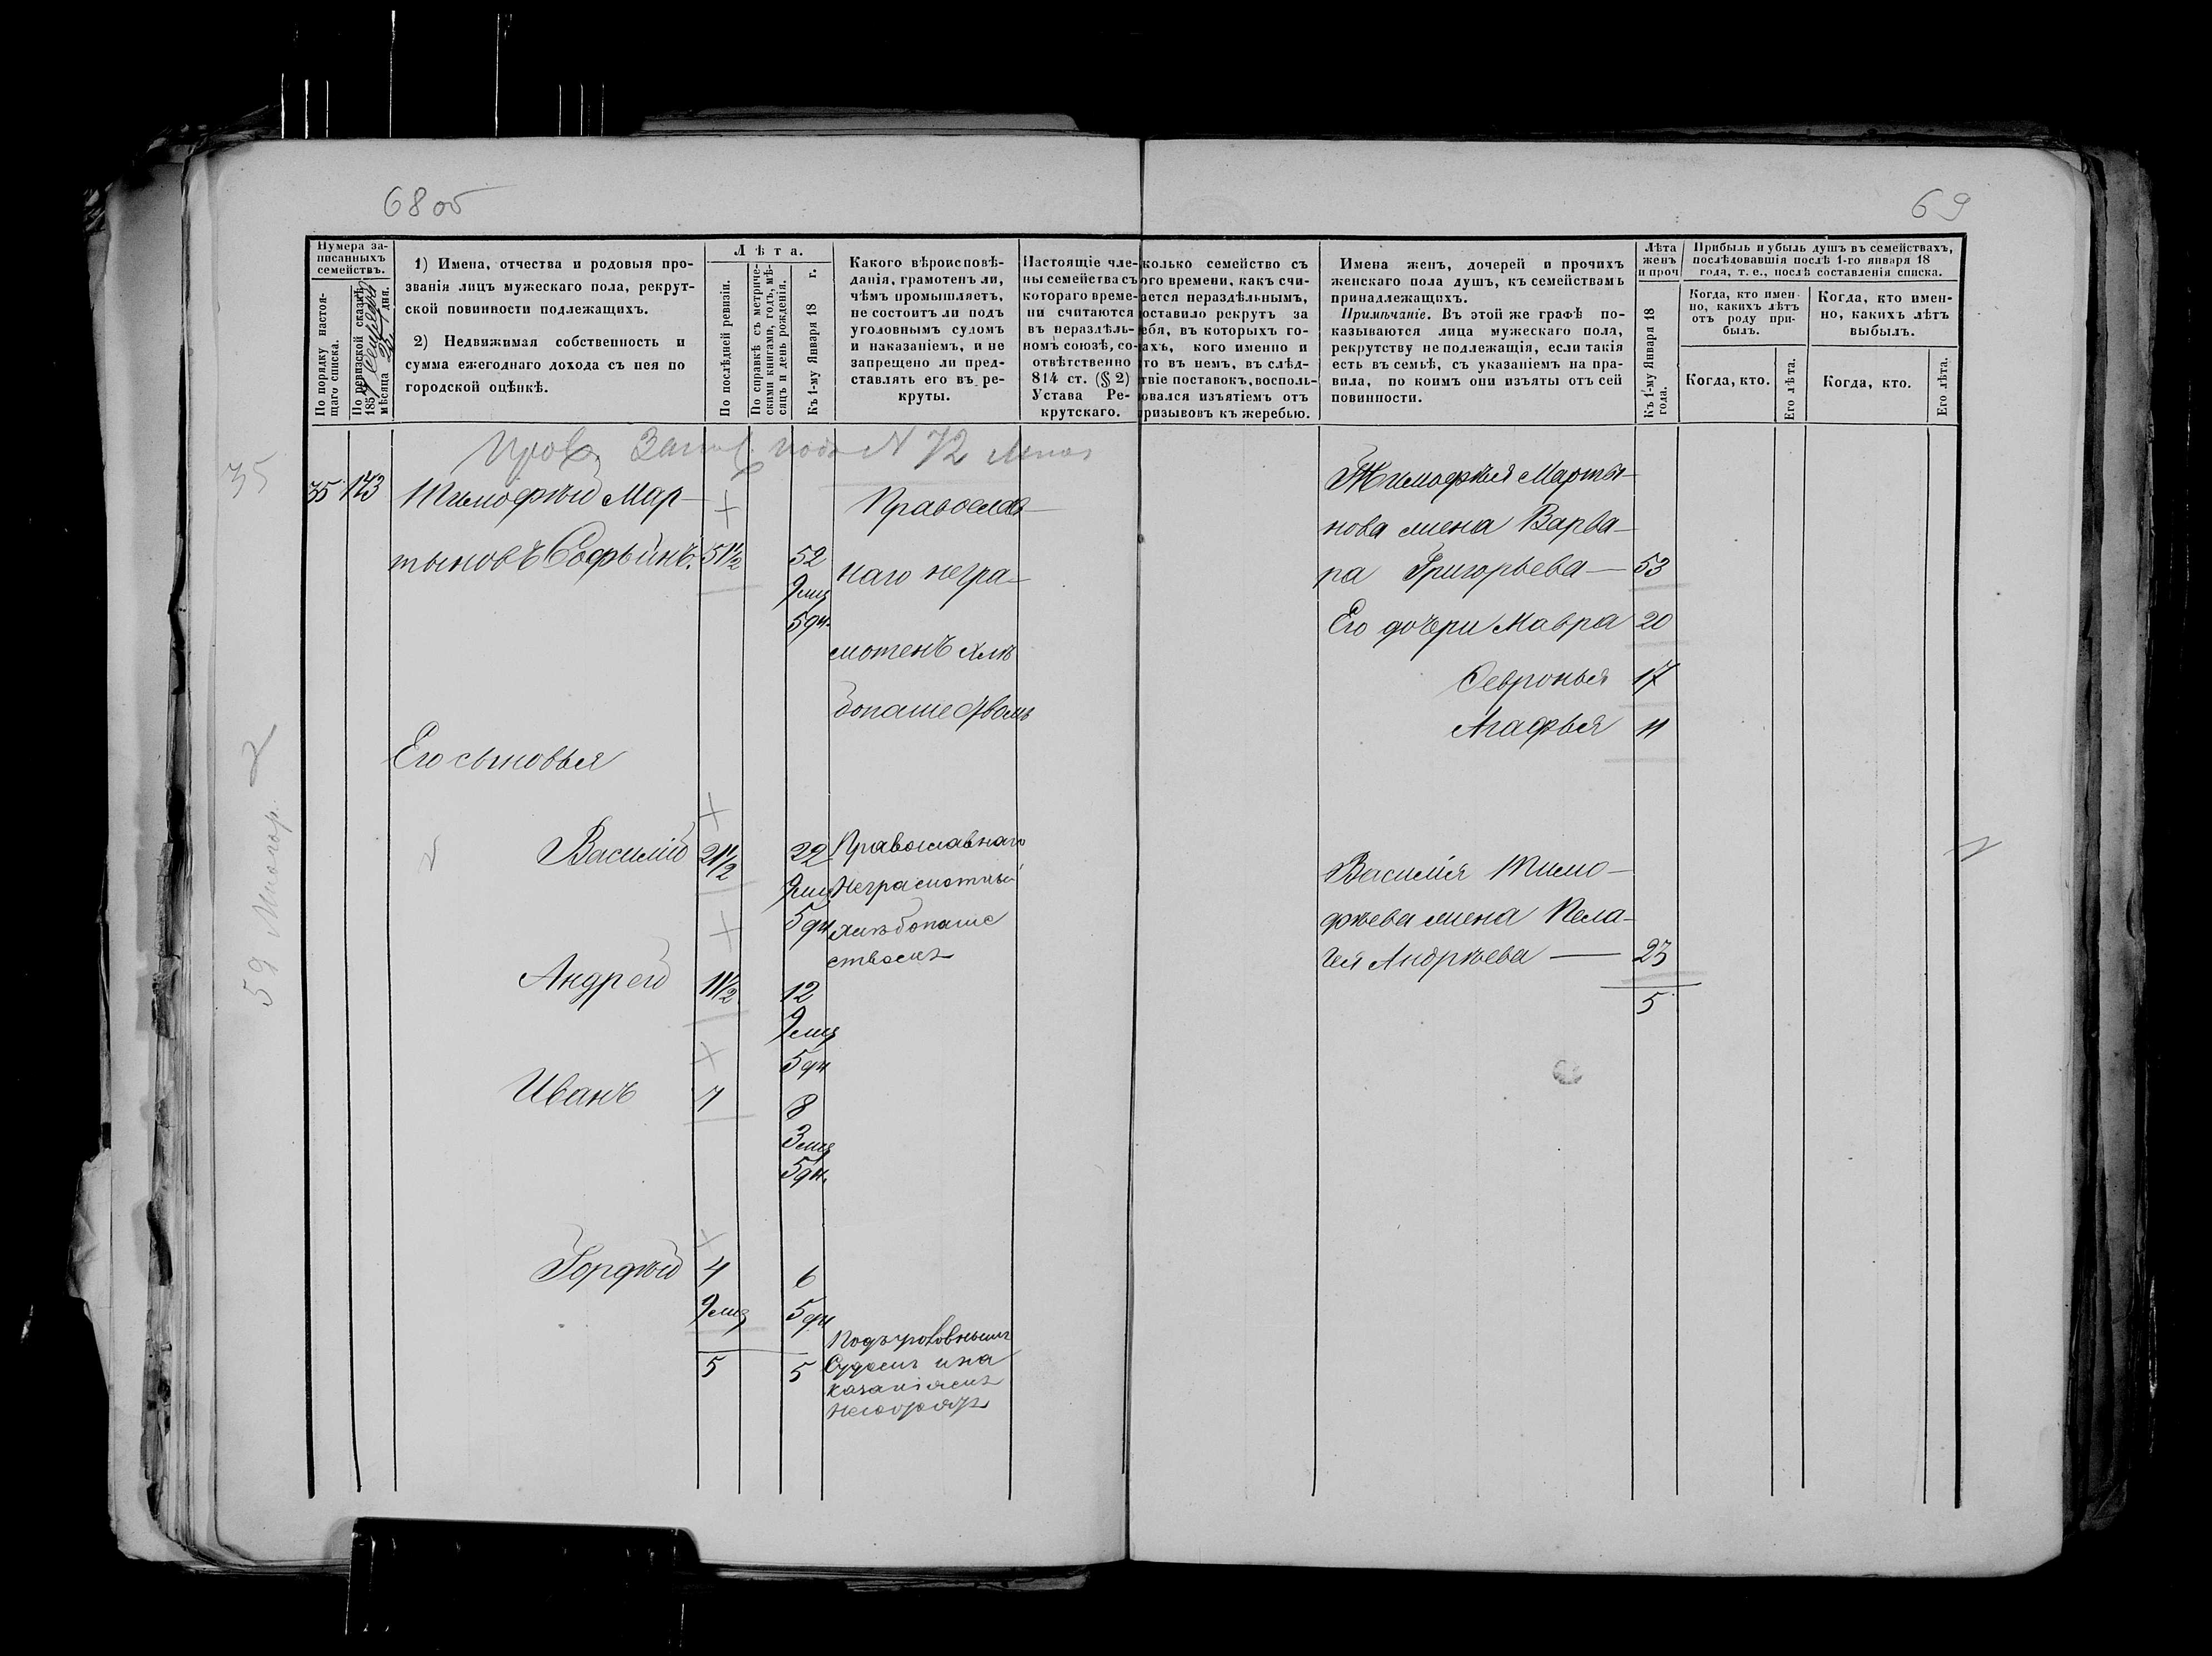 68 об
69
Нумера за-
писанныхъ
семействъ.
По порядку настоя-
щаго списка.
По ревизской сказкѣ
185
мѣсяца 25 дня.
1) Имена, отчества и родовыя про-
званія лицъ мужескаго пола, рекрут-
ской повинности подлежащихъ.
2) Недвижимая собственность и
сумма ежегоднаго дохода съ нея по
городской оцѣнкѣ.
Лѣта.
По послѣдней ревизіи.
По справкѣ съ метриче-
скими книгами, годъ, мѣ-
сяцъ и день рожденія.
Къ 1-му Января 18 г.
Какого вѣроисповѣ-
данія, грамотенъ ли,
чѣмъ промышляетъ,
не состоитъ ли подъ
уголовнымъ судомъ
и наказаніемъ, и не
запрещено ли пред-
ставлять его въ ре-
круты.
Настоящіе чле-
ны семейства съ
котораго време-
ни считаются
въ нераздѣль-
номъ союзѣ, со-
отвѣтственно
814 ст. (§ 2)
Устава Ре-
крутскаго.
колько семейство съ
ого времени, какъ счи-
ается нераздѣльнымъ,
оставило рекрутъ за
ебя, въ которыхъ го-
ахъ, кого именно и
то въ немъ, въ слѣд-
твіе поставокъ, восполь-
овался изъятіемъ отъ
ризывовъ къ жеребью.
Имена женъ, дочерей и прочихъ
женскаго пола душъ, къ семействамъ
принадлежащихъ.
Примѣчаніе. Въ этой же графѣ по-
казываются лица мужескаго пола,
рекрутству не подлежащія, если такія
есть въ семьѣ, съ указаніемъ на пра-
вила, по коимъ они изъяты отъ сей
повинности.
Лѣта
женъ
и проч
Къ 1-му Января 18
года.
Прибыль и убыль душъ въ семействахъ,
послѣдовавшія послѣ 1-го января 18
года, т. е., послѣ составленія списка.
Когда, кто имен-
но, какихъ лѣтъ
отъ роду при-
былъ.
Когда, кто имен-
но, какихъ лѣтъ
выбылъ.
Когда, кто.
Его лѣта.
Когда, кто.
Его лѣта.
подъ N 72
35
35 173 Тимофѣй Мар-
тыновъ Софьинъ. 51½ 52
9 мц
5 дн.
Православ-
наго негра-
мотенъ хлѣ
бопашествомъ
Его сыновья
Василій 21½ 22
9 мц
5 дн
Православнаго
Неграмотный
хлѣбопаше
ствомъ
Андрей 11½ 12
9 мц
5 дн
Иванъ 7 8
3 мц
5 дн.
Гордѣй 4 6
9 мц 5 дн
5 5
Подъ уголовнымъ
Судомъ и на
казаніемъ
59
2
Тимофѣя Марты-
нова жена Варва-
ра Григорьева — 53
Его дочери Мавра 20
Февронья 17
Агафья 11
Василія Тимо-
фѣева жена Пела-
гея Андрѣева — 23
5